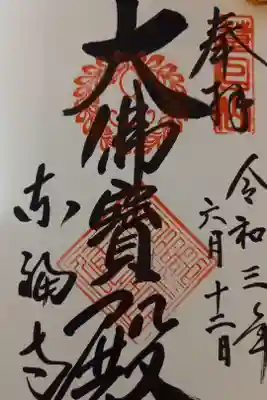 奉拝
令和三年
六月十二日
大佛寶殿
東福寺